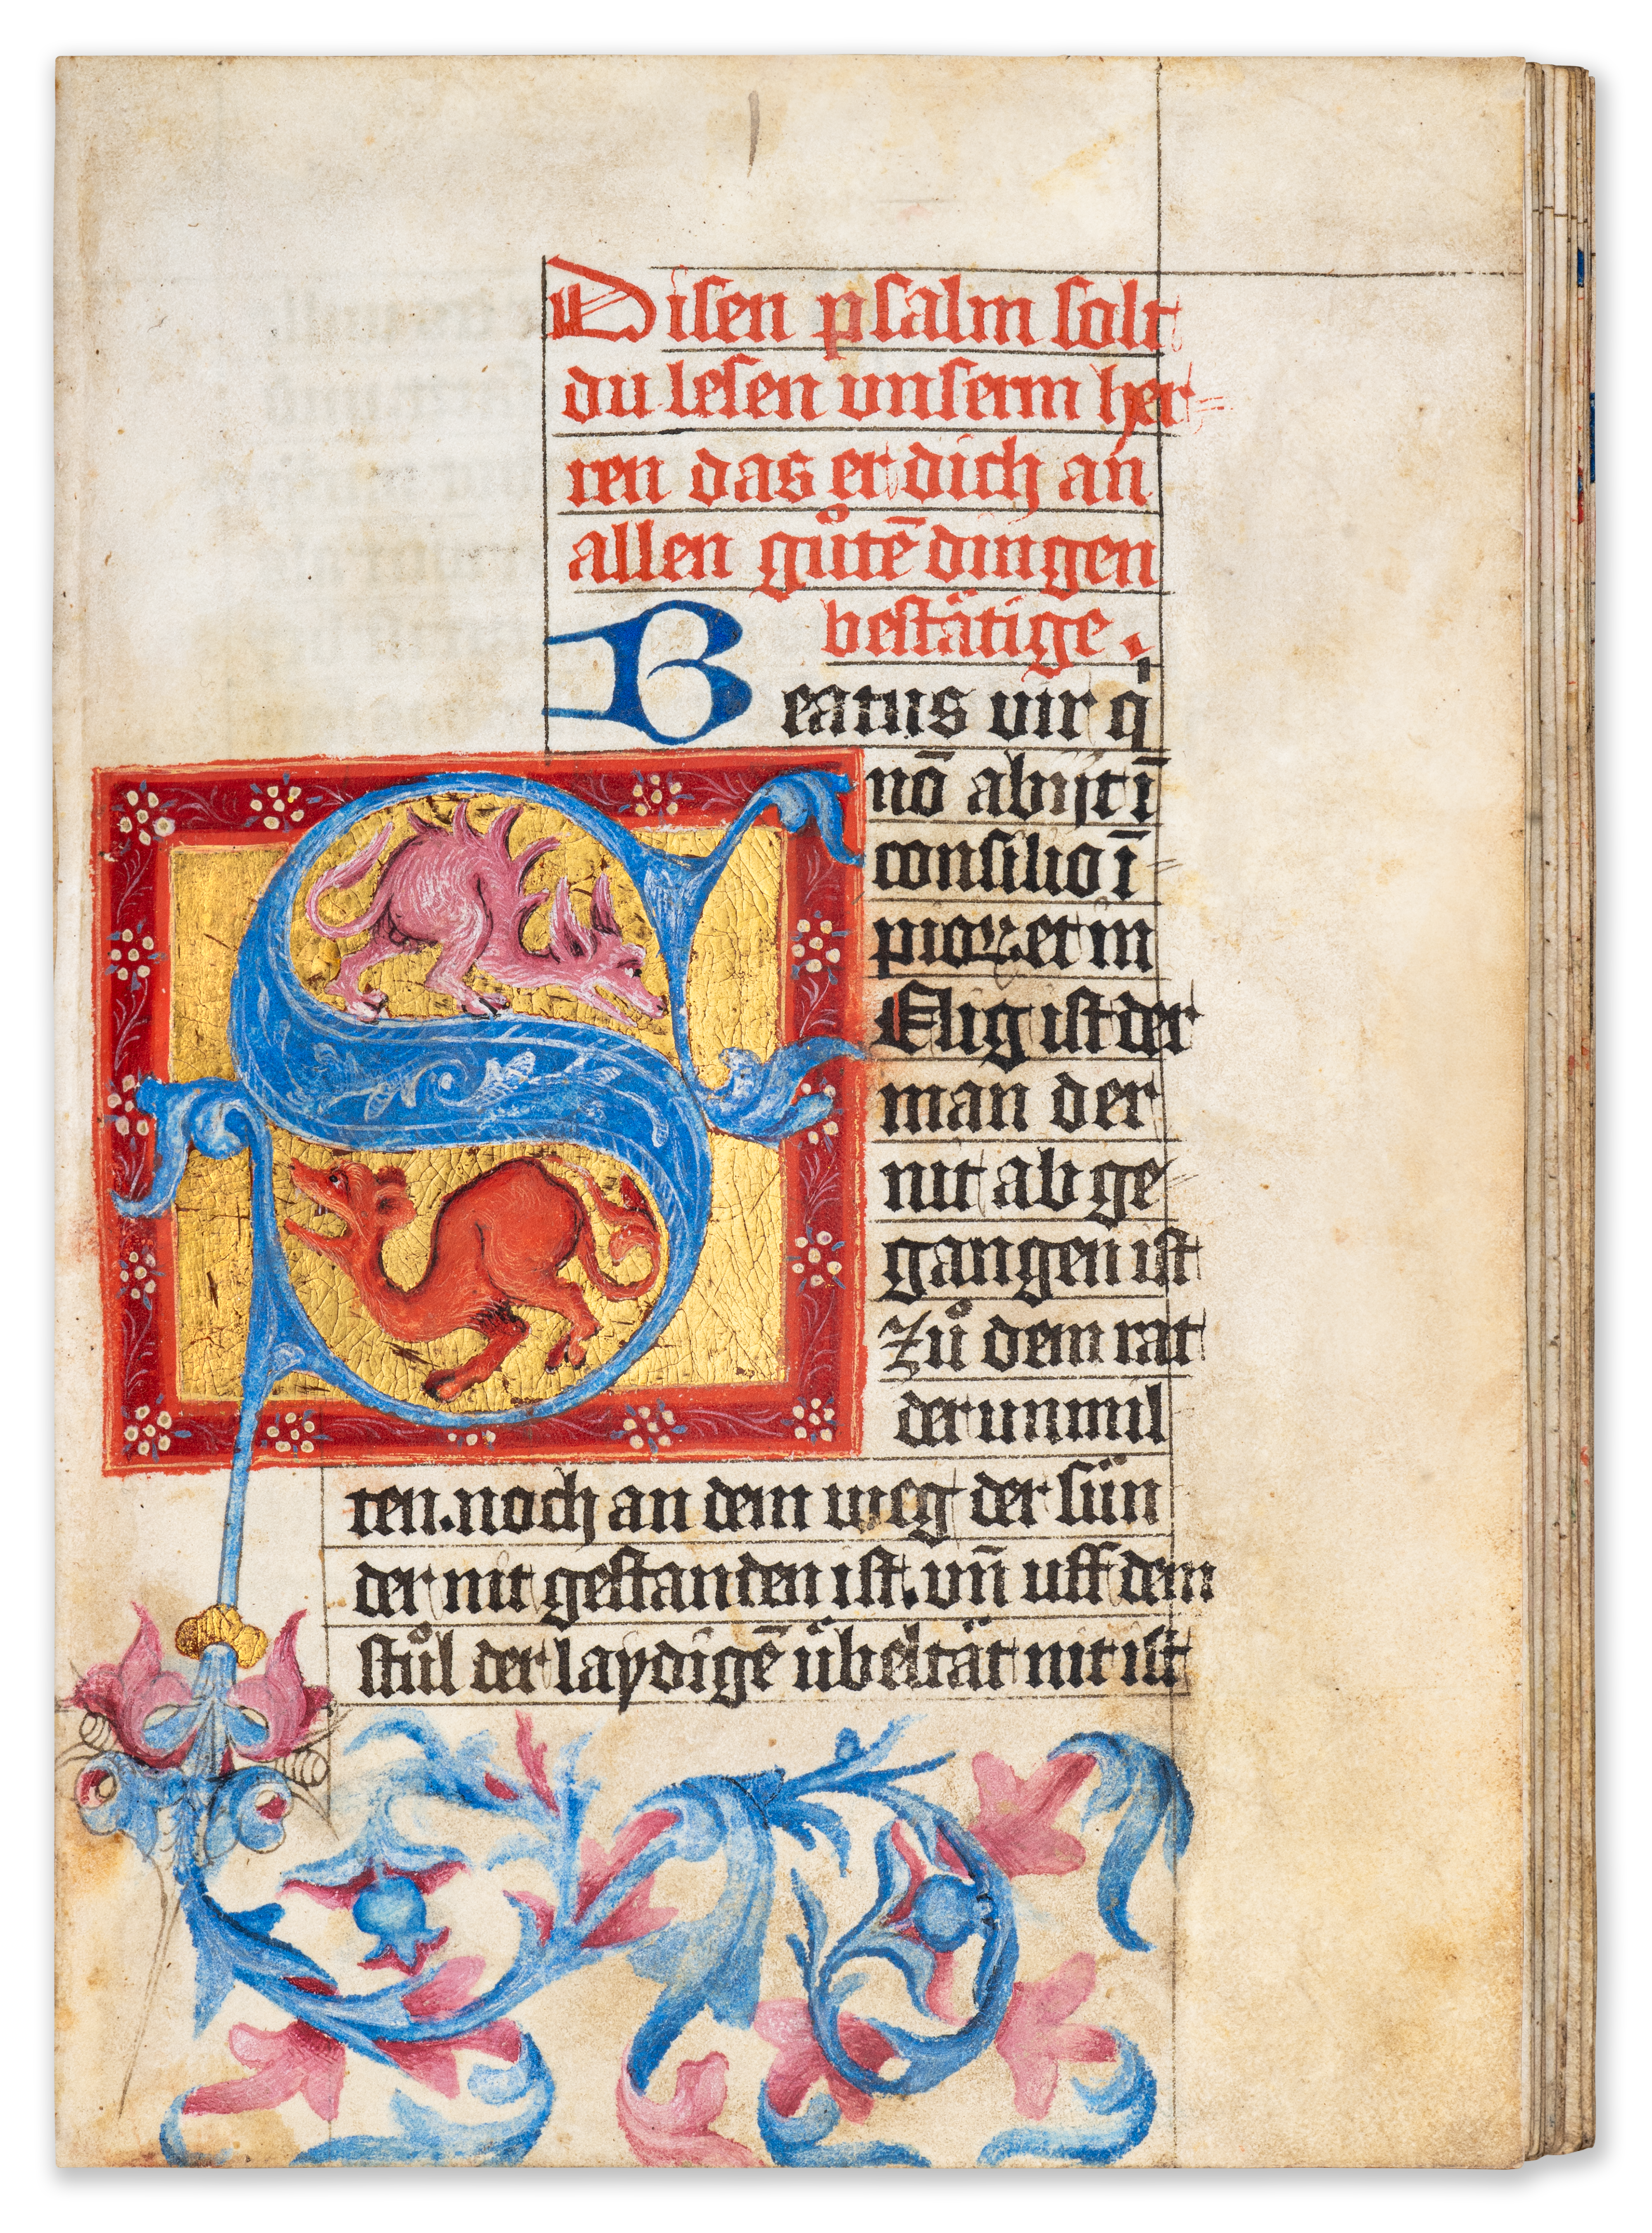 Disen psalm solt
du lesen vnserm her=
ren das er dich an
allen gůtē dingen
bestätige.
Beatus uir qͥ
nō abijt ī
consilio ī=
pioꝝ et in
Selig ist der
man der
nit ab ge=
gangen ist
zů dem rat
der unmil
ten. noch an dem weg der sün
der nit gestanden ist. vn̄ uff dem
stůl der laydigē übeltät nit ist